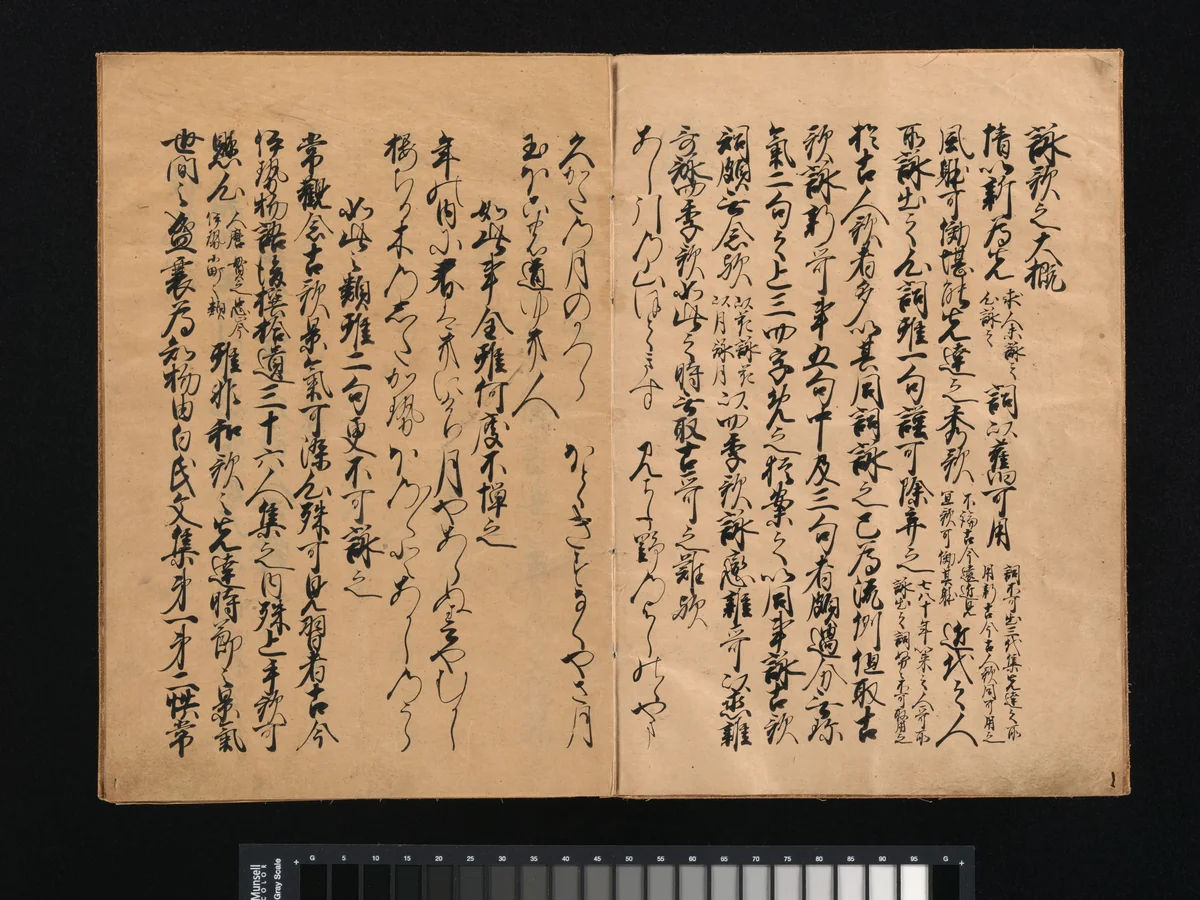 詠歌之大概
情以新為先 求人未詠之心詠之 詞以舊可用 詞不可出三代集先達之所用新古今古人歌同可用之
風躰可効堪能先達之秀歌 不論古今遠近見宜歌可効其躰 近代之人
所詠出之心詞雖一句謹可除弃之 七八十年以来之人哥所詠出之詞努々不可取用之
於古人歌者多以其同詞詠之已為流例但取古
歌詠新哥事五句中及三句者頗過分無珍
氣二句之上三四字免之猶案之以同事詠古歌
詞頗無念歟 以花詠花以月詠月 以四季歌詠戀雜哥以戀雜
哥詠四季歌如此之時無取古哥之難歟
あし引の山ほとゝきす みよし野のよしのゝやま
久かたの月のかつら ほとゝきすなくやさ月
玉ほこの道ゆき人
如此事全雖何度不憚之
年の内に春はきにけり 月やあらぬ春やむかし
櫻ちる木のしたかせ ほの〱とあかしのうら
如此之類雖二句更不可詠之
常觀念古歌景氣可染心殊可見習者古今
伊勢物語後撰拾遺三十六人集之内殊上手歌可
懸心 人麿貫之忠岑伊勢小町之類 雖非和歌之先達時節之景氣
世間之盛衰為知物由白氏文集第一第二帙常
Munsell
COLOR
Gray Scale
G 5 10 15 20 25 30 35 40 45 50 55 60 65 70 75 80 85 90 95 G